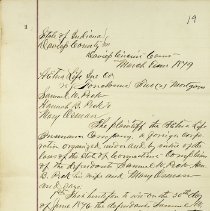 19
State of Indiana,
Daviess County ss
Daviess Circuit Court
March Term 1879
Aetna Life Ins Co
vs Foreclosure Mortgage
Samuel W. Peck
Hannah B. Peck &
Mary
The plaintiff the Aetna Life
Insurance Company, a foreign corpo-
ration organized under and by virtue of the
laws of the State of Connecticut Complains
of the defendants Samuel W. Peck
B. Peck his wife and Mary
and says
That heretofore to wit on the 30th day
of June 1876 the defendant Samuel W.